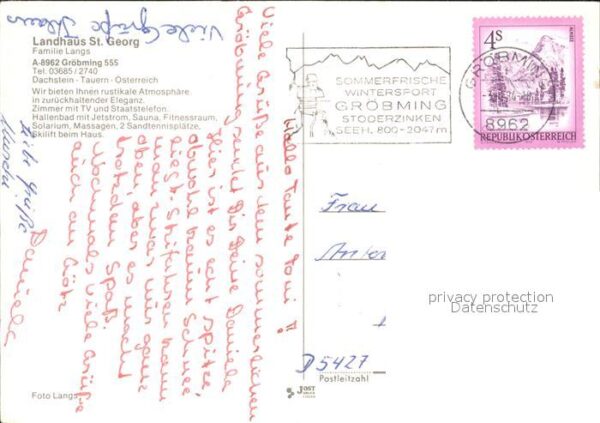 Landhaus St. Georg
Familie Langs
A-8962 Gröbming 555
Tel. 03685 / 2740
Dachstein - Tauern - Österreich
Wir bieten Ihnen rustikale Atmosphäre
in zurückhaltender Eleganz.
Zimmer mit TV und Staatstelefon.
Hallenbad mit Jetstrom, Sauna, Fitnessraum,
Solarium, Massagen, 2 Sandtennisplätze,
Skilift beim Haus.
Viele Grüße Klaus
Hallo Tante Toni !
Viele Grüße aus dem sommerlichen
Gröbming sendet Dir Deine Daniela
Hier ist es echt spitze,
obwohl kaum Schnee
liegt. Skifahren kann
man zwar nur ganz
oben, aber es macht
trotzdem Spaß.
Nochmals viele Grüße
auch an Götz
Daniela
Liebe Grüße
SOMMERFRISCHE
WINTERSPORT
GRÖBMING
STODERZINKEN
SEEH. 800-2047m
GRÖBMING
8962
4S
REPUBLIK ÖSTERREICH
Frau
Anton
privacy protection
Datenschutz
D5427
Postleitzahl
Foto Langs
JOST